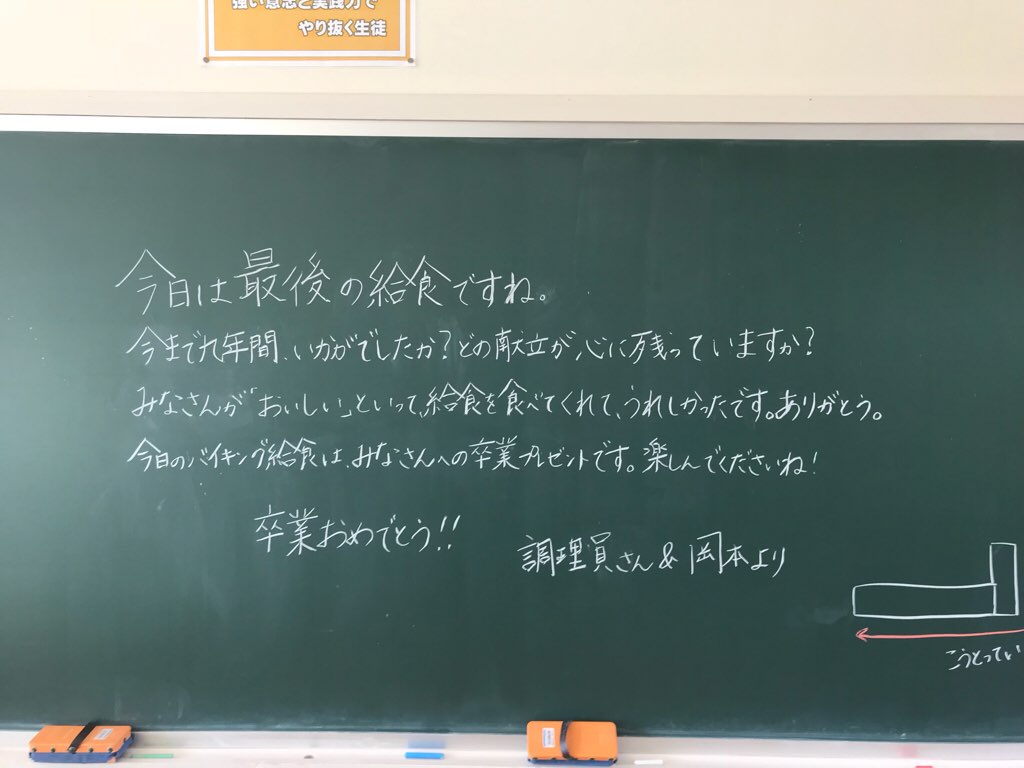 強い意志と実践力で
やり抜く生徒
今日は最後の給食ですね。
今まで九年間、いかがでしたか？どの献立が、心に残っていますか？
みなさんが「おいしい」といって、給食を食べてくれて、うれしかったです。ありがとう。
今日のバイキング給食は、みなさんへの卒業プレゼントです。楽しんでくださいね！
卒業おめでとう!!
調理員さん&岡本より
こうとってい